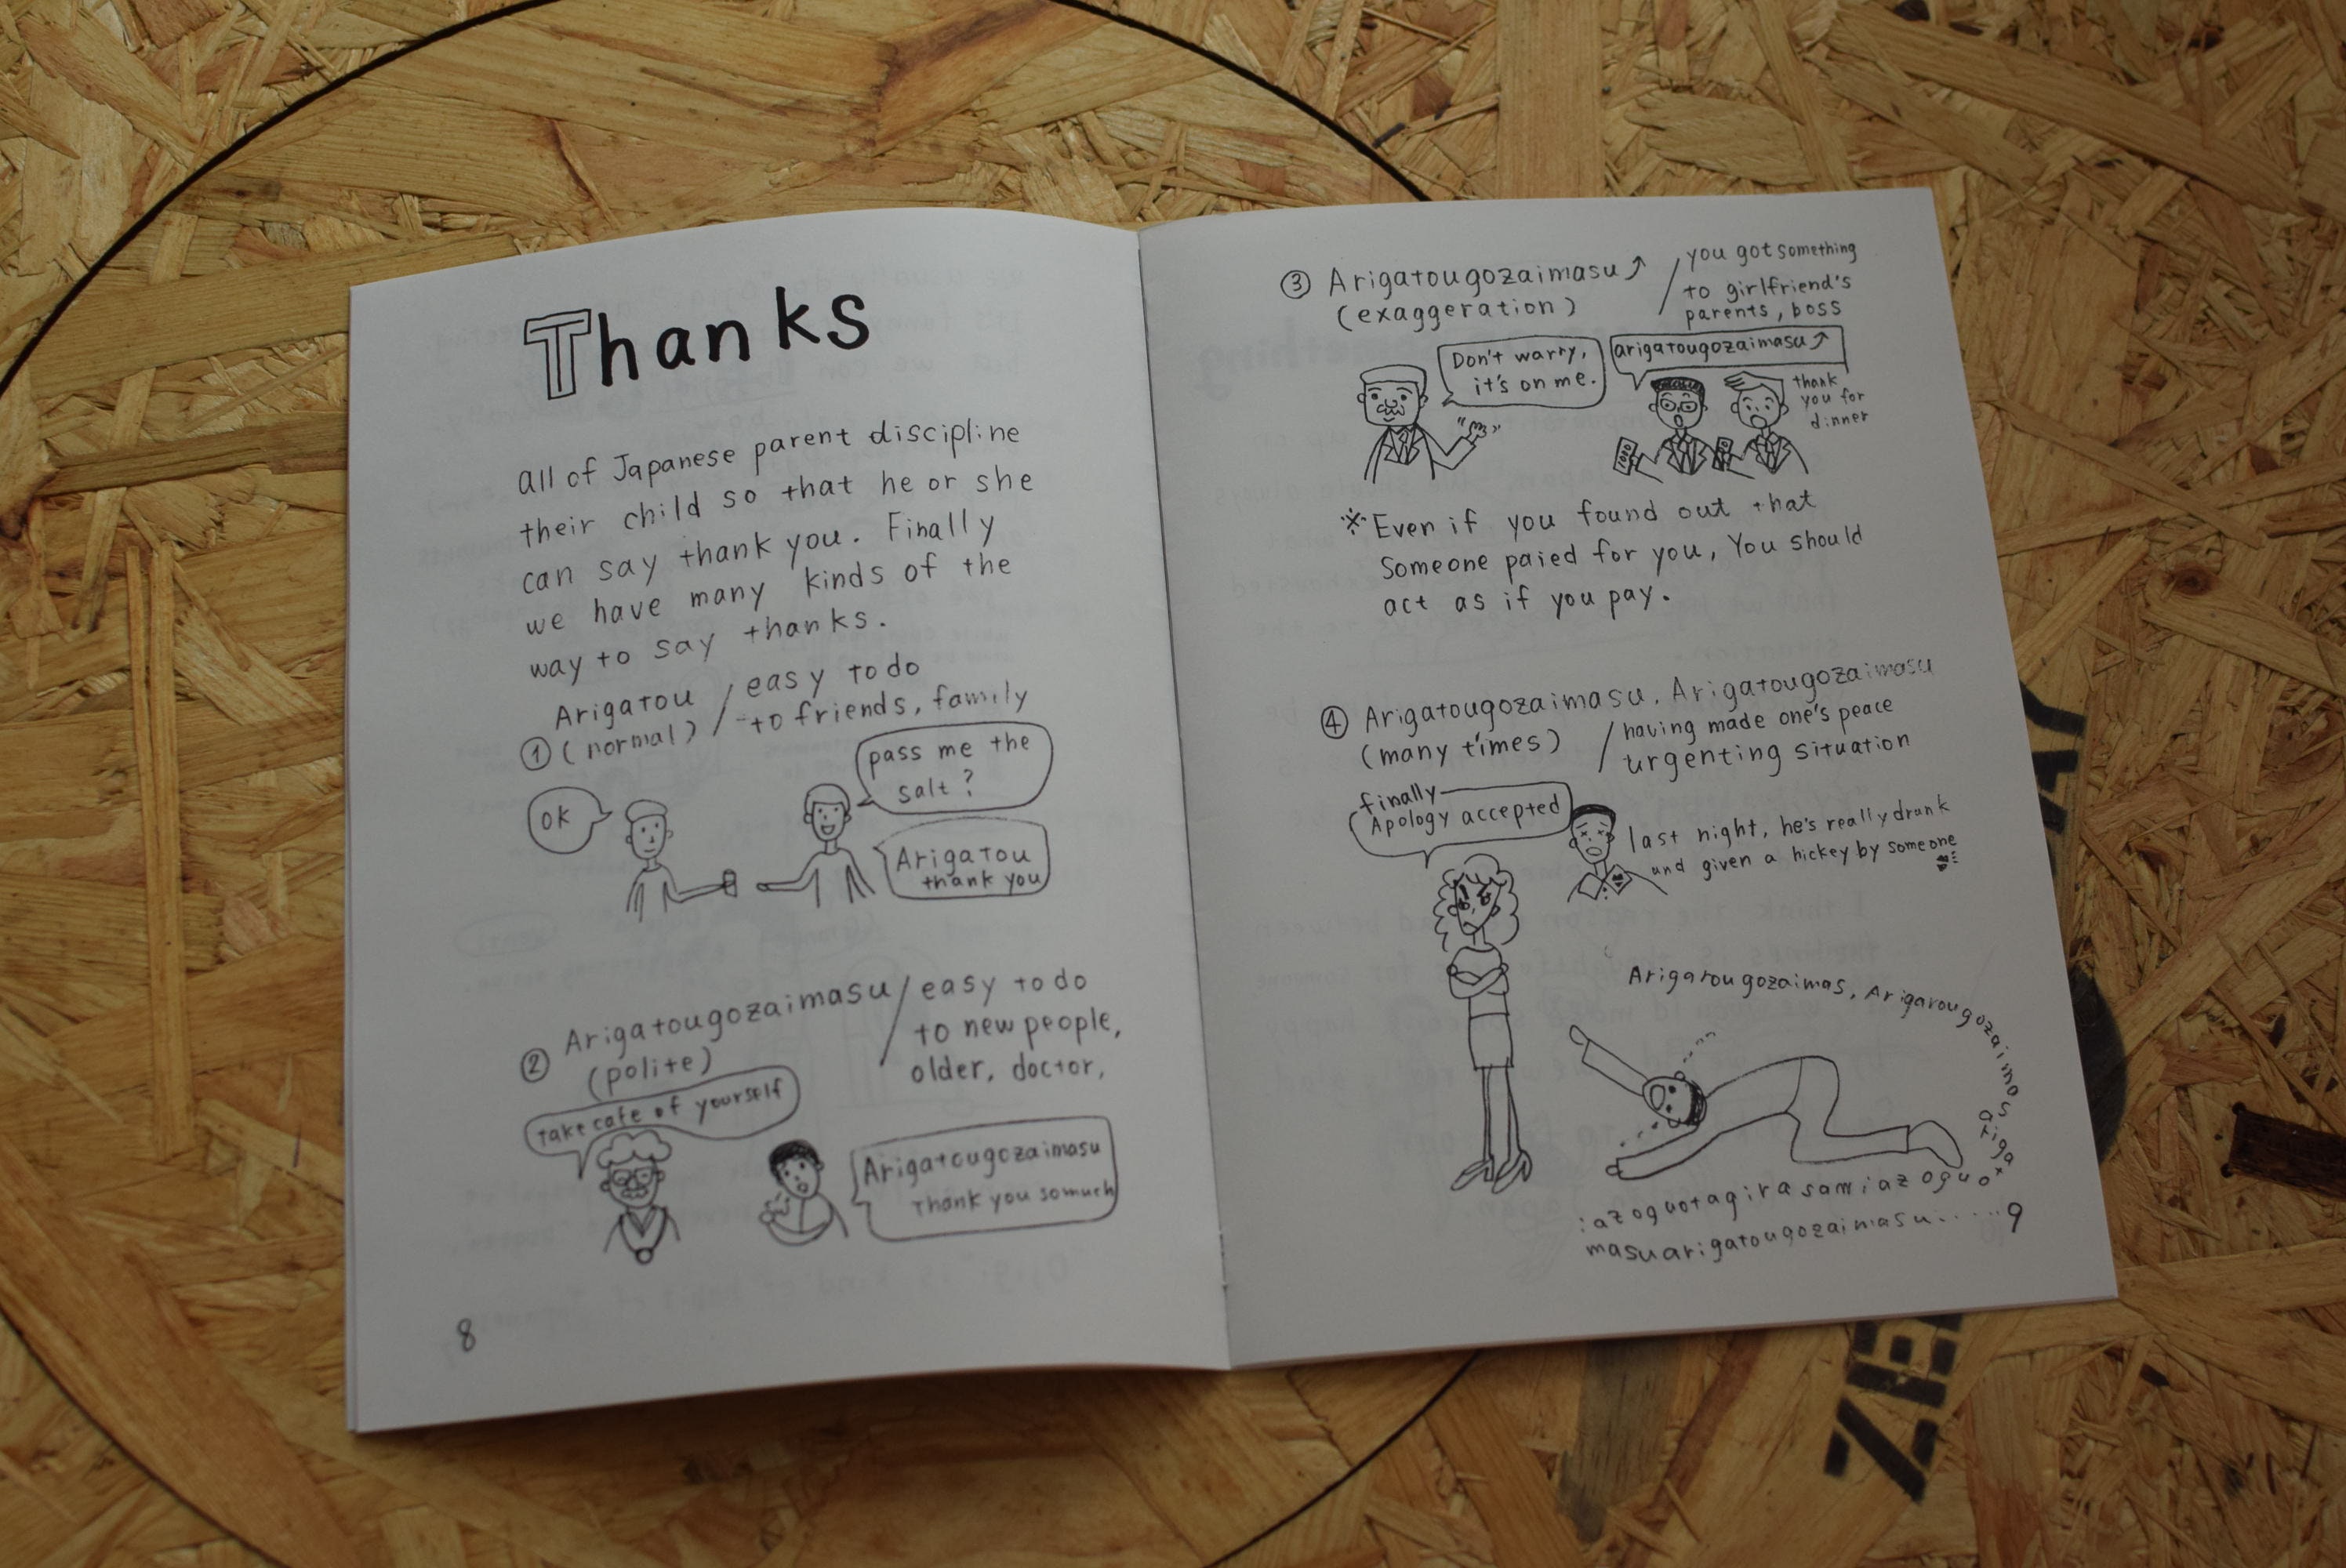 Thanks
all of Japanese parent discipline
their child so that he or she
can say thank you. Finally
we have many kinds of the
way to say thanks.
① Arigatou / easy to do
(normal) to friends, family
pass me the
salt?
OK
Arigatou
thank you
② Arigatougozaimasu / easy to do
(polite) to new people,
older, doctor,
take cafe of yourself
Arigatougozaimasu
Thank you somuch
8
③ Arigatougozaimasu⤴ / you got something
(exaggeration) to girlfriend's
parents, boss
Don't warry,
it's on me.
arigatougozaimasu⤴
thank
you for
dinner
※Even if you found out that
Someone paied for you, You should
act as if you pay.
④ Arigatougozaimasu. Arigatougozaimasu
(many times) / having made one's peace
urgenting situation
finally
Apology accepted
last night, he's really drunk
and given a hickey by someone
Arigarougozaimas, Arigarougozaimas arigat
ougozaimasarigatougozai
masuarigatougozaimasu.....
9